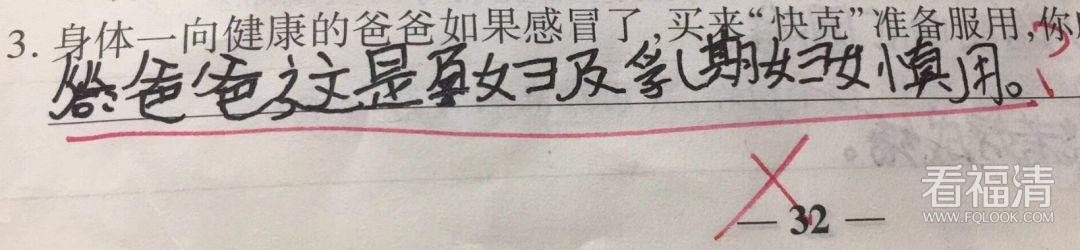 3. 身体一向健康的爸爸如果感冒了,买来“快克”准备服用,你
答:爸爸,这是孕妇及乳期妇女慎用。
— 32 —
看福清
WWW.FQLOOK.COM